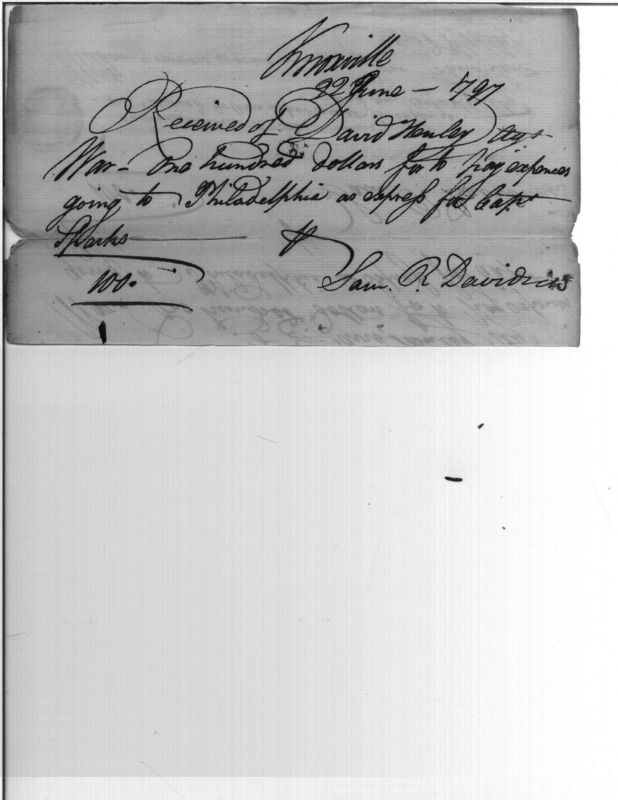 Knoxville
22 June – 797
Received of David Henley Agt
War – One hundred dollars for to pay expences
going to Philadelphia as express for Capt
Sparks
100.
Sam. R Davidson